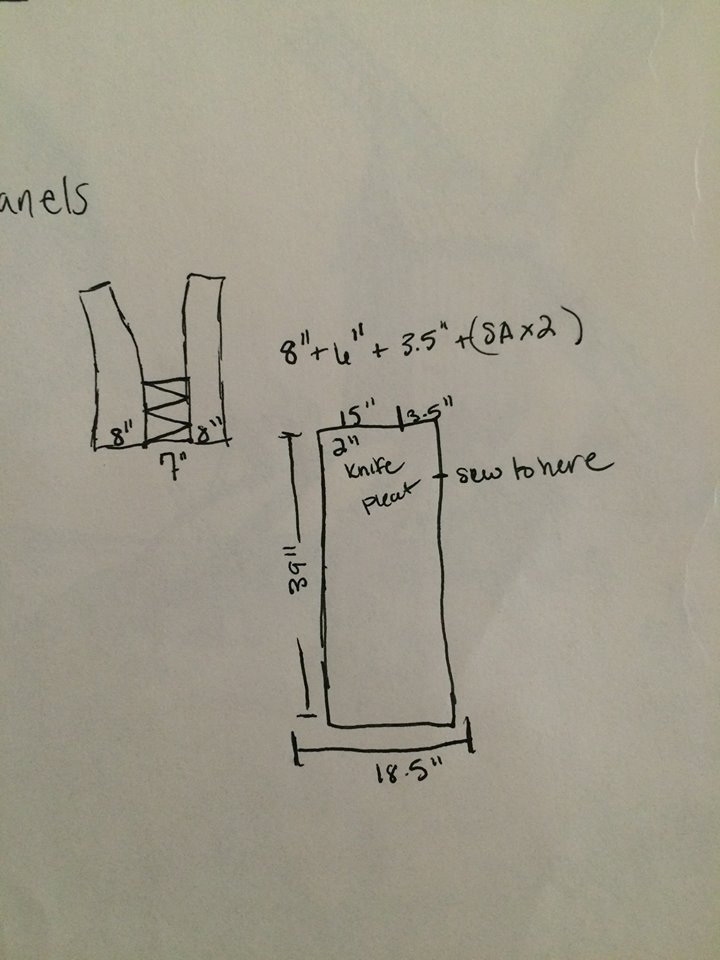 anels
8" 8"
7"
8" + 6" + 3.5" + (SA x 2)
15" 3.5"
2"
Knife
pleat
sew to here
39"
18.5"